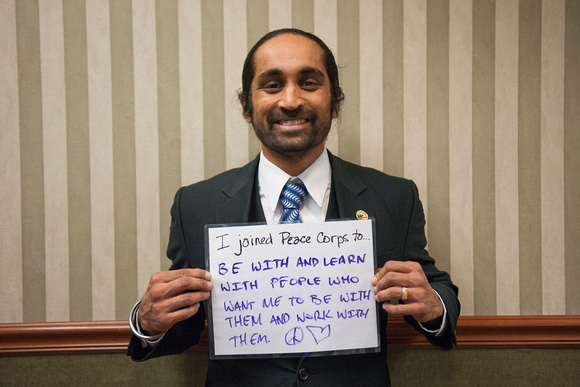 I joined Peace Corps to...
BE WITH AND LEARN
WITH PEOPLE WHO
WANT ME TO BE WITH
THEM AND WORK WITH
THEM.